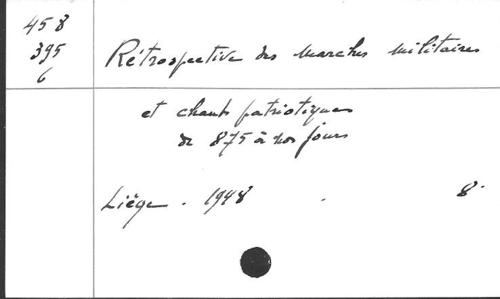 458
395
6
Rétrospective des marches militaires
et chants patriotiques
de 875 à nos jours
Liège . 1948 . 8°